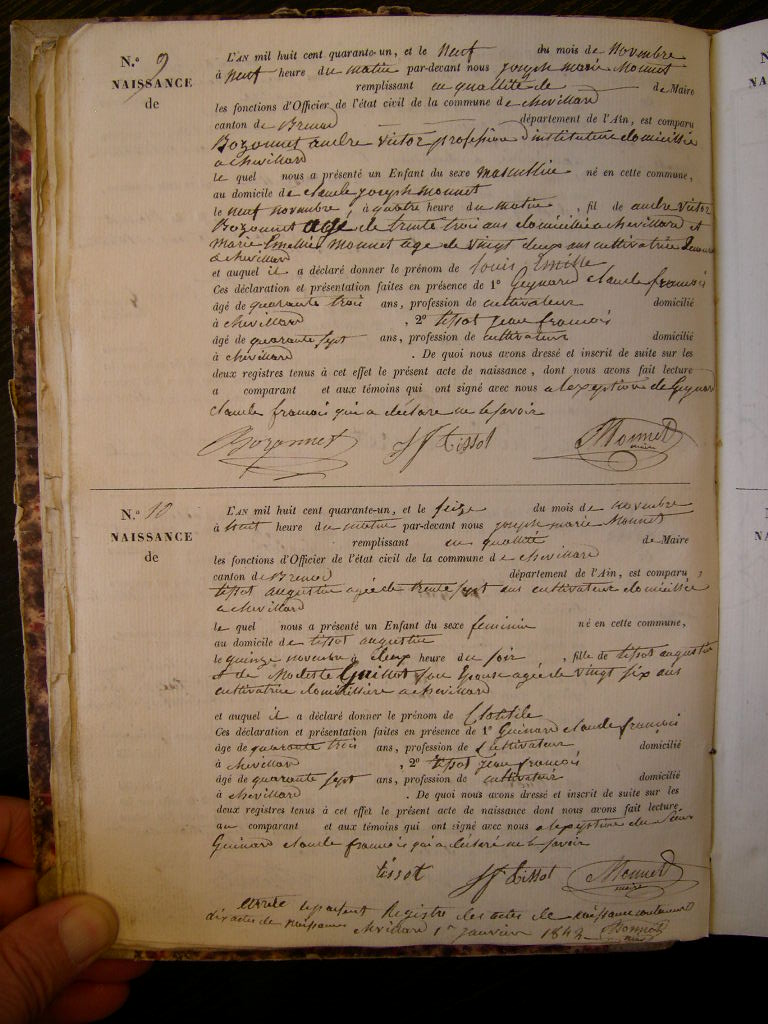 N.º 9
NAISSANCE
de
L'AN mil huit cent quarante-un, et le neuf du mois de Novembre
à neuf heure du matin par-devant nous joseph marie Monnet
remplissant en quallité de de Maire
les fonctions d'Officier de l'état civil de la commune de chevillard
canton de Brenod département de l'Ain, est comparu
Bozonnet andre victor profession d'instituteur domicillié
a chevillard
le quel nous a présenté un Enfant du sexe masculin né en cette commune,
au domicile de claude joseph monnet
le neuf novembre, à quatre heure du matin, fil de andre victor
Bozonnet agé de trente trois ans domicilié a chevillard et
marie Emellie Monnet age de vingt deux ans cultivatrice
a chevillard
et auquel il a déclaré donner le prénom de louis Emille
Ces déclaration et présentation faites en présence de 1º Guynard claude françois
âgé de quarante trois ans, profession de cultivateur domicilié
à chevillard, 2º tissot jean francois
âgé de quarante sept ans, profession de cultivateur domicilié
à chevillard. De quoi nous avons dressé et inscrit de suite sur les
deux registres tenus à cet effet le présent acte de naissance, dont nous avons fait lecture
a comparant et aux témoins qui ont signé avec nous a lexeption de Guynard
claude francois qui a déclaré ne le savoir
Bozonnet JF tissot Monnet
maire
N.º 10
NAISSANCE
de
L'AN mil huit cent quarante-un, et le seize du mois de novembre
à huit heure du matin par-devant nous joseph marie Monnet
remplissant en quallité de Maire
les fonctions d'Officier de l'état civil de la commune de chevillard
canton de Brenod département de l'Ain, est comparu
tissot augustin agée de trente sept ans cultivateur domicillié
a chevillard
le quel nous a présenté un Enfant du sexe feminin né en cette commune,
au domicile de tissot augustin
le quinze novembre à deux heure du soir, fille de tissot augustin
et de Modeste Guillot son Epouse agée de vingt six ans
cultivatrice domicillière a chevillard
et auquel il a déclaré donner le prénom de Clotilde
Ces déclaration et présentation faites en présence de 1º Guinard claude françois
âgé de quarante trois ans, profession de Cultivateur domicilié
à chevillard, 2º tissot jean françois
âgé de quarante sept ans, profession de cultivateur domicilié
à chevillard. De quoi nous avons dressé et inscrit de suite sur les
deux registres tenus à cet effet le présent acte de naissance dont nous avons fait lecture
au comparant et aux témoins qui ont signé avec nous a lexeption du Sieur
Guinard claude francois qui a déclaré ne le savoir
tissot JF tissot Monnet
maire
arrété le présent Registre des actes de naissance contenant
dix actes de naissance chevillard 1er janvier 1842 Monnet
maire